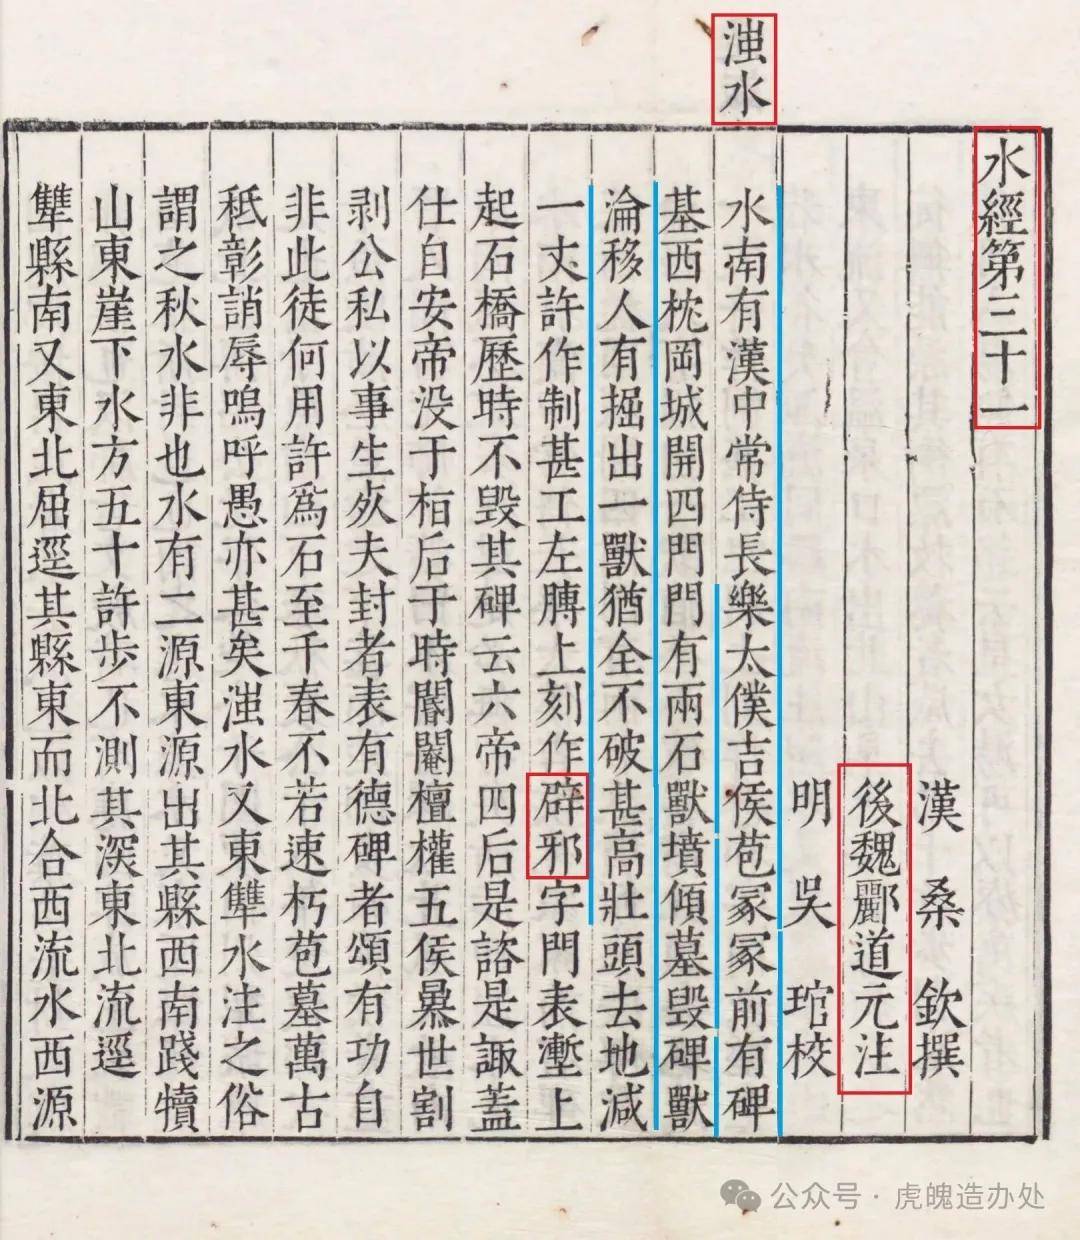 滍水
水經第三十一
漢 桑 欽撰
後魏酈道元注
明 吳 琯校
水南有漢中常侍長樂太僕吉侯苞冢冢前有碑
基西枕岡城開四門門有兩石獸墳傾墓毁碑獸
淪移人有掘出一獸猶全不破甚高壯頭去地減
一丈許作制甚工左膊上刻作辟邪字門表壍上
起石橋歷時不毀其碑云六帝四后是諮是諏蓋
仕自安帝没于桓后于時閽閹擅權五侯暴世割
剥公私以事生死夫封者表有德碑者頌有功自
非此徒何用許爲石至千春不若速朽苞墓萬古
秪彰誚辱嗚呼愚亦甚矣滍水又東犨水注之俗
謂之秋水非也水有二源東源出其縣西南踐犢
山東崖下水方五十許步不測其深東北流逕
犨縣南又東北屈逕其縣東而北合西流水西源
公众号·虎魄造办处